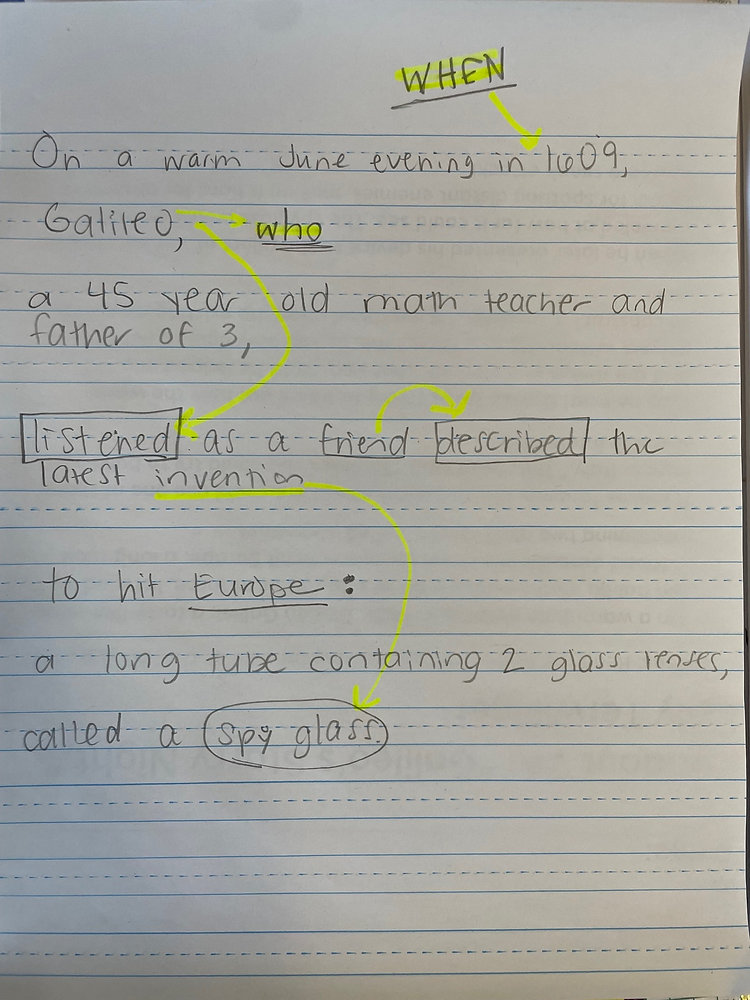 WHEN
On a warm June evening in 1609,
Galileo, who
a 45 year old math teacher and
father of 3,
listened as a friend described the
latest invention
to hit Europe:
a long tube containing 2 glass lenses,
called a spy glass.